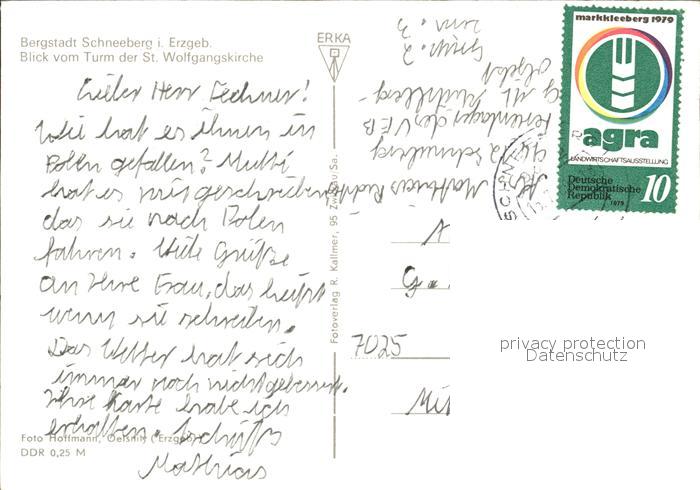 Bergstadt Schneeberg i. Erzgeb.
Blick vom Turm der St. Wolfgangskirche
Lieber Herr Lechner!
Wie hat es ihnen in
Polen gefallen? Mutti
hat es mir geschrieben
das sie nach Polen
fahren. Viele Grüße
an Ihre Frau, das heißt
wenn sie schreiben.
Das Wetter hat sich
immer noch nicht gebessert.
Ihre Karte habe ich
erhalten. Es grüßt
Mathias
Foto Hoffmann, Oelsnitz (Erzgeb.)
DDR 0,25 M
ERKA
Fotoverlag R. Kallmer, 95 Zwickau Sa.
Mathias
9412 Schneeberg
Ferienlager des VEB
Objekt
Grup. 2
Zim. 3
markkleeberg 1979
agra
LANDWIRTSCHAFTSAUSSTELLUNG
Deutsche
Demokratische
Republik 10
1979
A
G..
7025
privacy protection
Datenschutz